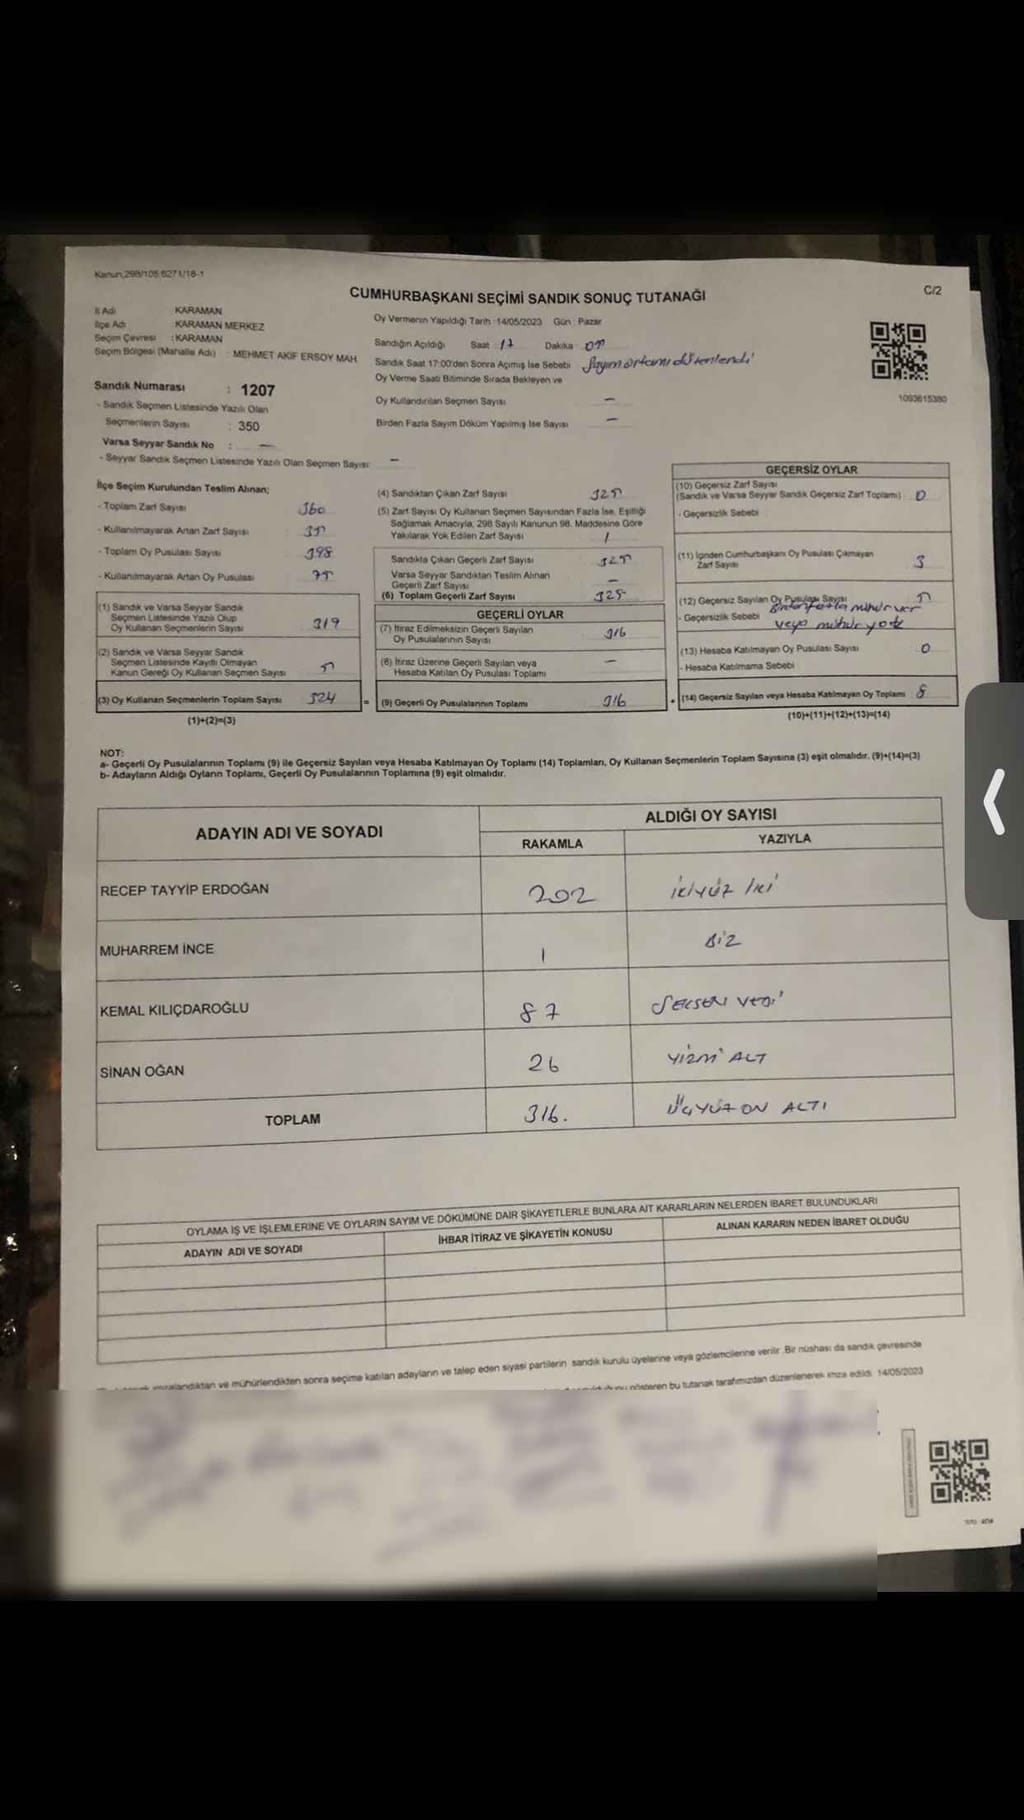 Kanun,298/105 6271/18-1
C/2
CUMHURBAŞKANI SEÇİMİ SANDIK SONUÇ TUTANAĞI
İl Adı : KARAMAN
İlçe Adı : KARAMAN MERKEZ
Seçim Çevresi : KARAMAN
Seçim Bölgesi (Mahalle Adı) : MEHMET AKİF ERSOY MAH.
Sandık Numarası : 1207
- Sandık Seçmen Listesinde Yazılı Olan
Seçmenlerin Sayısı : 350
Varsa Seyyar Sandık No : —
- Seyyar Sandık Seçmen Listesinde Yazılı Olan Seçmen Sayısı: —
Oy Vermenin Yapıldığı Tarih :14/05/2023 Gün : Pazar
Sandığın Açıldığı Saat : 17 Dakika : 05
Sandık Saat 17:00'den Sonra Açımış İse Sebebi Sayım ortamı düzenlendi
Oy Verme Saati Bitiminde Sırada Bekleyen ve
Oy Kullandırılan Seçmen Sayısı —
Birden Fazla Sayım Döküm Yapılmış İse Sayısı —
1093615380
İlçe Seçim Kurulundan Teslim Alınan;
- Toplam Zarf Sayısı 360
- Kullanılmayarak Artan Zarf Sayısı 35
- Toplam Oy Pusulası Sayısı 398
- Kullanılmayarak Artan Oy Pusulası 75
(1) Sandık ve Varsa Seyyar Sandık
Seçmen Listesinde Yazılı Olup
Oy Kullanan Seçmenlerin Sayısı 319
(2) Sandık ve Varsa Seyyar Sandık
Seçmen Listesinde Kayıtlı Olmayan
Kanun Gereği Oy Kullanan Seçmen Sayısı 5
(3) Oy Kullanan Seçmenlerin Toplam Sayısı 324
(1)+(2)=(3)
=
(4) Sandıktan Çıkan Zarf Sayısı 325
(5) Zarf Sayısı Oy Kullanan Seçmen Sayısından Fazla İse, Eşitliği
Sağlamak Amacıyla, 298 Sayılı Kanunun 98. Maddesine Göre
Yakılarak Yok Edilen Zarf Sayısı 1
Sandıkta Çıkan Geçerli Zarf Sayısı 325
Varsa Seyyar Sandıktan Teslim Alınan
Geçerli Zarf Sayısı —
(6) Toplam Geçerli Zarf Sayısı 325
GEÇERLİ OYLAR
(7) İtiraz Edilmeksizin Geçerli Sayılan
Oy Pusulalarının Sayısı 316
(8) İtiraz Üzerine Geçerli Sayılan veya
Hesaba Katılan Oy Pusulası Toplamı —
(9) Geçerli Oy Pusulalarının Toplamı 316
+
GEÇERSİZ OYLAR
(10) Geçersiz Zarf Sayısı
(Sandık ve Varsa Seyyar Sandık Geçersiz Zarf Toplamı) 0
- Geçersizlik Sebebi
(11) İçinden Cumhurbaşkanı Oy Pusulası Çıkmayan
Zarf Sayısı 3
(12) Geçersiz Sayılan Oy Pusulası Sayısı 5
- Geçersizlik Sebebi Birden fazla mühür var
veya mühür yok
(13) Hesaba Katılmayan Oy Pusulası Sayısı 0
- Hesaba Katılmama Sebebi
(14) Geçersiz Sayılan veya Hesaba Katılmayan Oy Toplamı 8
(10)+(11)+(12)+(13)=(14)
NOT:
a- Geçerli Oy Pusulalarının Toplamı (9) ile Geçersiz Sayılan veya Hesaba Katılmayan Oy Toplamı (14) Toplamları, Oy Kullanan Seçmenlerin Toplam Sayısına (3) eşit olmalıdır. (9)+(14)=(3)
b- Adayların Aldığı Oyların Toplamı, Geçerli Oy Pusulalarının Toplamına (9) eşit olmalıdır.
ADAYIN ADI VE SOYADI ALDIĞI OY SAYISI
RAKAMLA YAZIYLA
RECEP TAYYİP ERDOĞAN 202 İKİYÜZ İKİ
MUHARREM İNCE 1 BİR
KEMAL KILIÇDAROĞLU 87 SEKSEN YEDİ
SİNAN OĞAN 26 YİRMİ ALT
TOPLAM 316. ÜÇYÜZ ON ALTI
OYLAMA İŞ VE İŞLEMLERİNE VE OYLARIN SAYIM VE DÖKÜMÜNE DAİR ŞİKAYETLERLE BUNLARA AİT KARARLARIN NELERDEN İBARET BULUNDUKLARI
ADAYIN ADI VE SOYADI İHBAR İTİRAZ VE ŞİKAYETİN KONUSU ALINAN KARARIN NEDEN İBARET OLDUĞU
imzalandıktan ve mühürlendikten sonra seçime katılan adayların ve talep eden siyasi partilerin sandık kurulu üyelerine veya gözlemcilerine verilir. Bir nüshası da sandık çevresinde
gösteren bu tutanak tarafımızdan düzenlenerek imza edildi. 14/05/2023